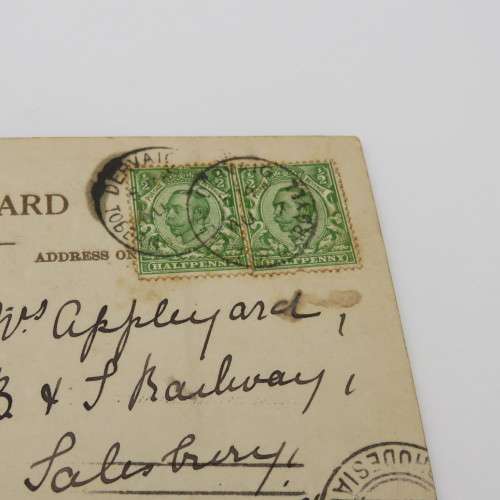 ARD
DERVAIG
HALFPENNY HALFPENNY
ADDRESS ON
Mrs Appleyard,
B & S Railway,
Salesbury,
RHODESIA